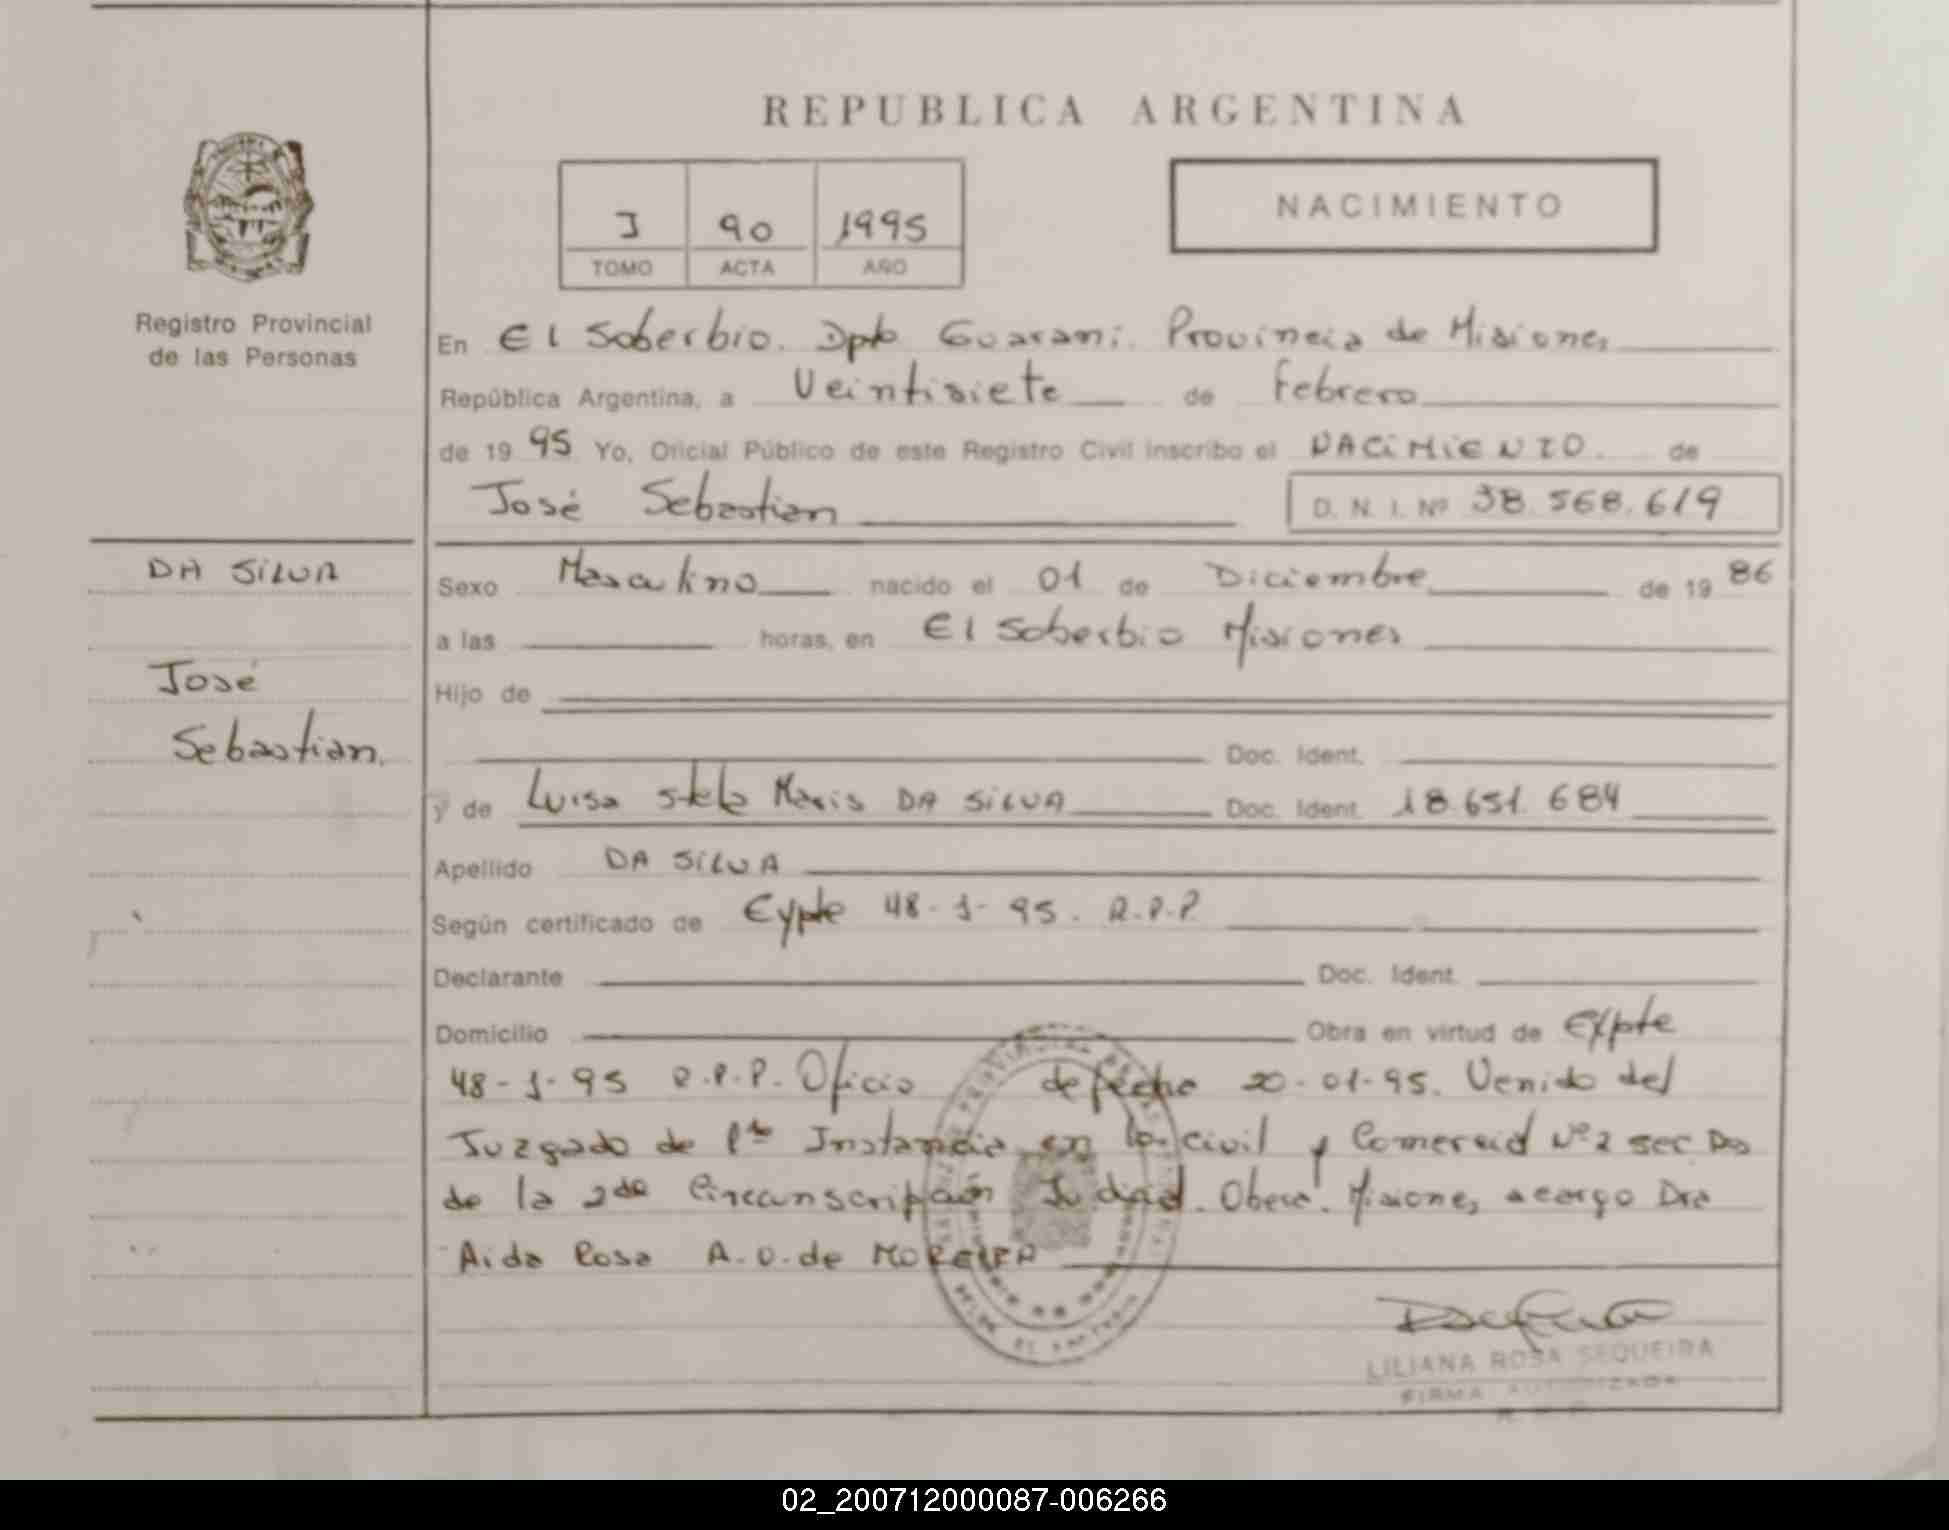 REPUBLICA ARGENTINA
I 90 1995
TOMO ACTA AÑO
NACIMIENTO
Registro Provincial
de las Personas
En El Soberbio. Dpto Guarani. Provincia de Misiones
República Argentina, a Veintisiete de Febrero
de 19 95 Yo, Oficial Público de este Registro Civil inscribo el NACIMIENTO. de
José Sebastian D. N. I. Nº 38.568.619
DA SILVA
José
Sebastian.
Sexo Masculino nacido el 01 de Diciembre de 19 86
a las horas, en El Soberbio Misiones
Hijo de
Doc. Ident.
y de Luisa Stela Maris DA SILVA Doc. Ident. 18.651.684
Apellido DA SILVA
Según certificado de Expte 48-1-95. R.P.P.
Declarante Doc. Ident.
Domicilio Obra en virtud de Expte
48-1-95 R.P.P. Oficio de fecha 20-01-95. Venido del
Juzgado de Instancia en lo civil y Comercial Nº 2 sec
de la 2da Circunscripción Judicial. Obera. Misiones, a cargo Dra
Aida Rosa A.O. de MOREIRA
LILIANA ROSA SEQUEIRA
FIRMA AUTORIZADA
02_200712000087-006266